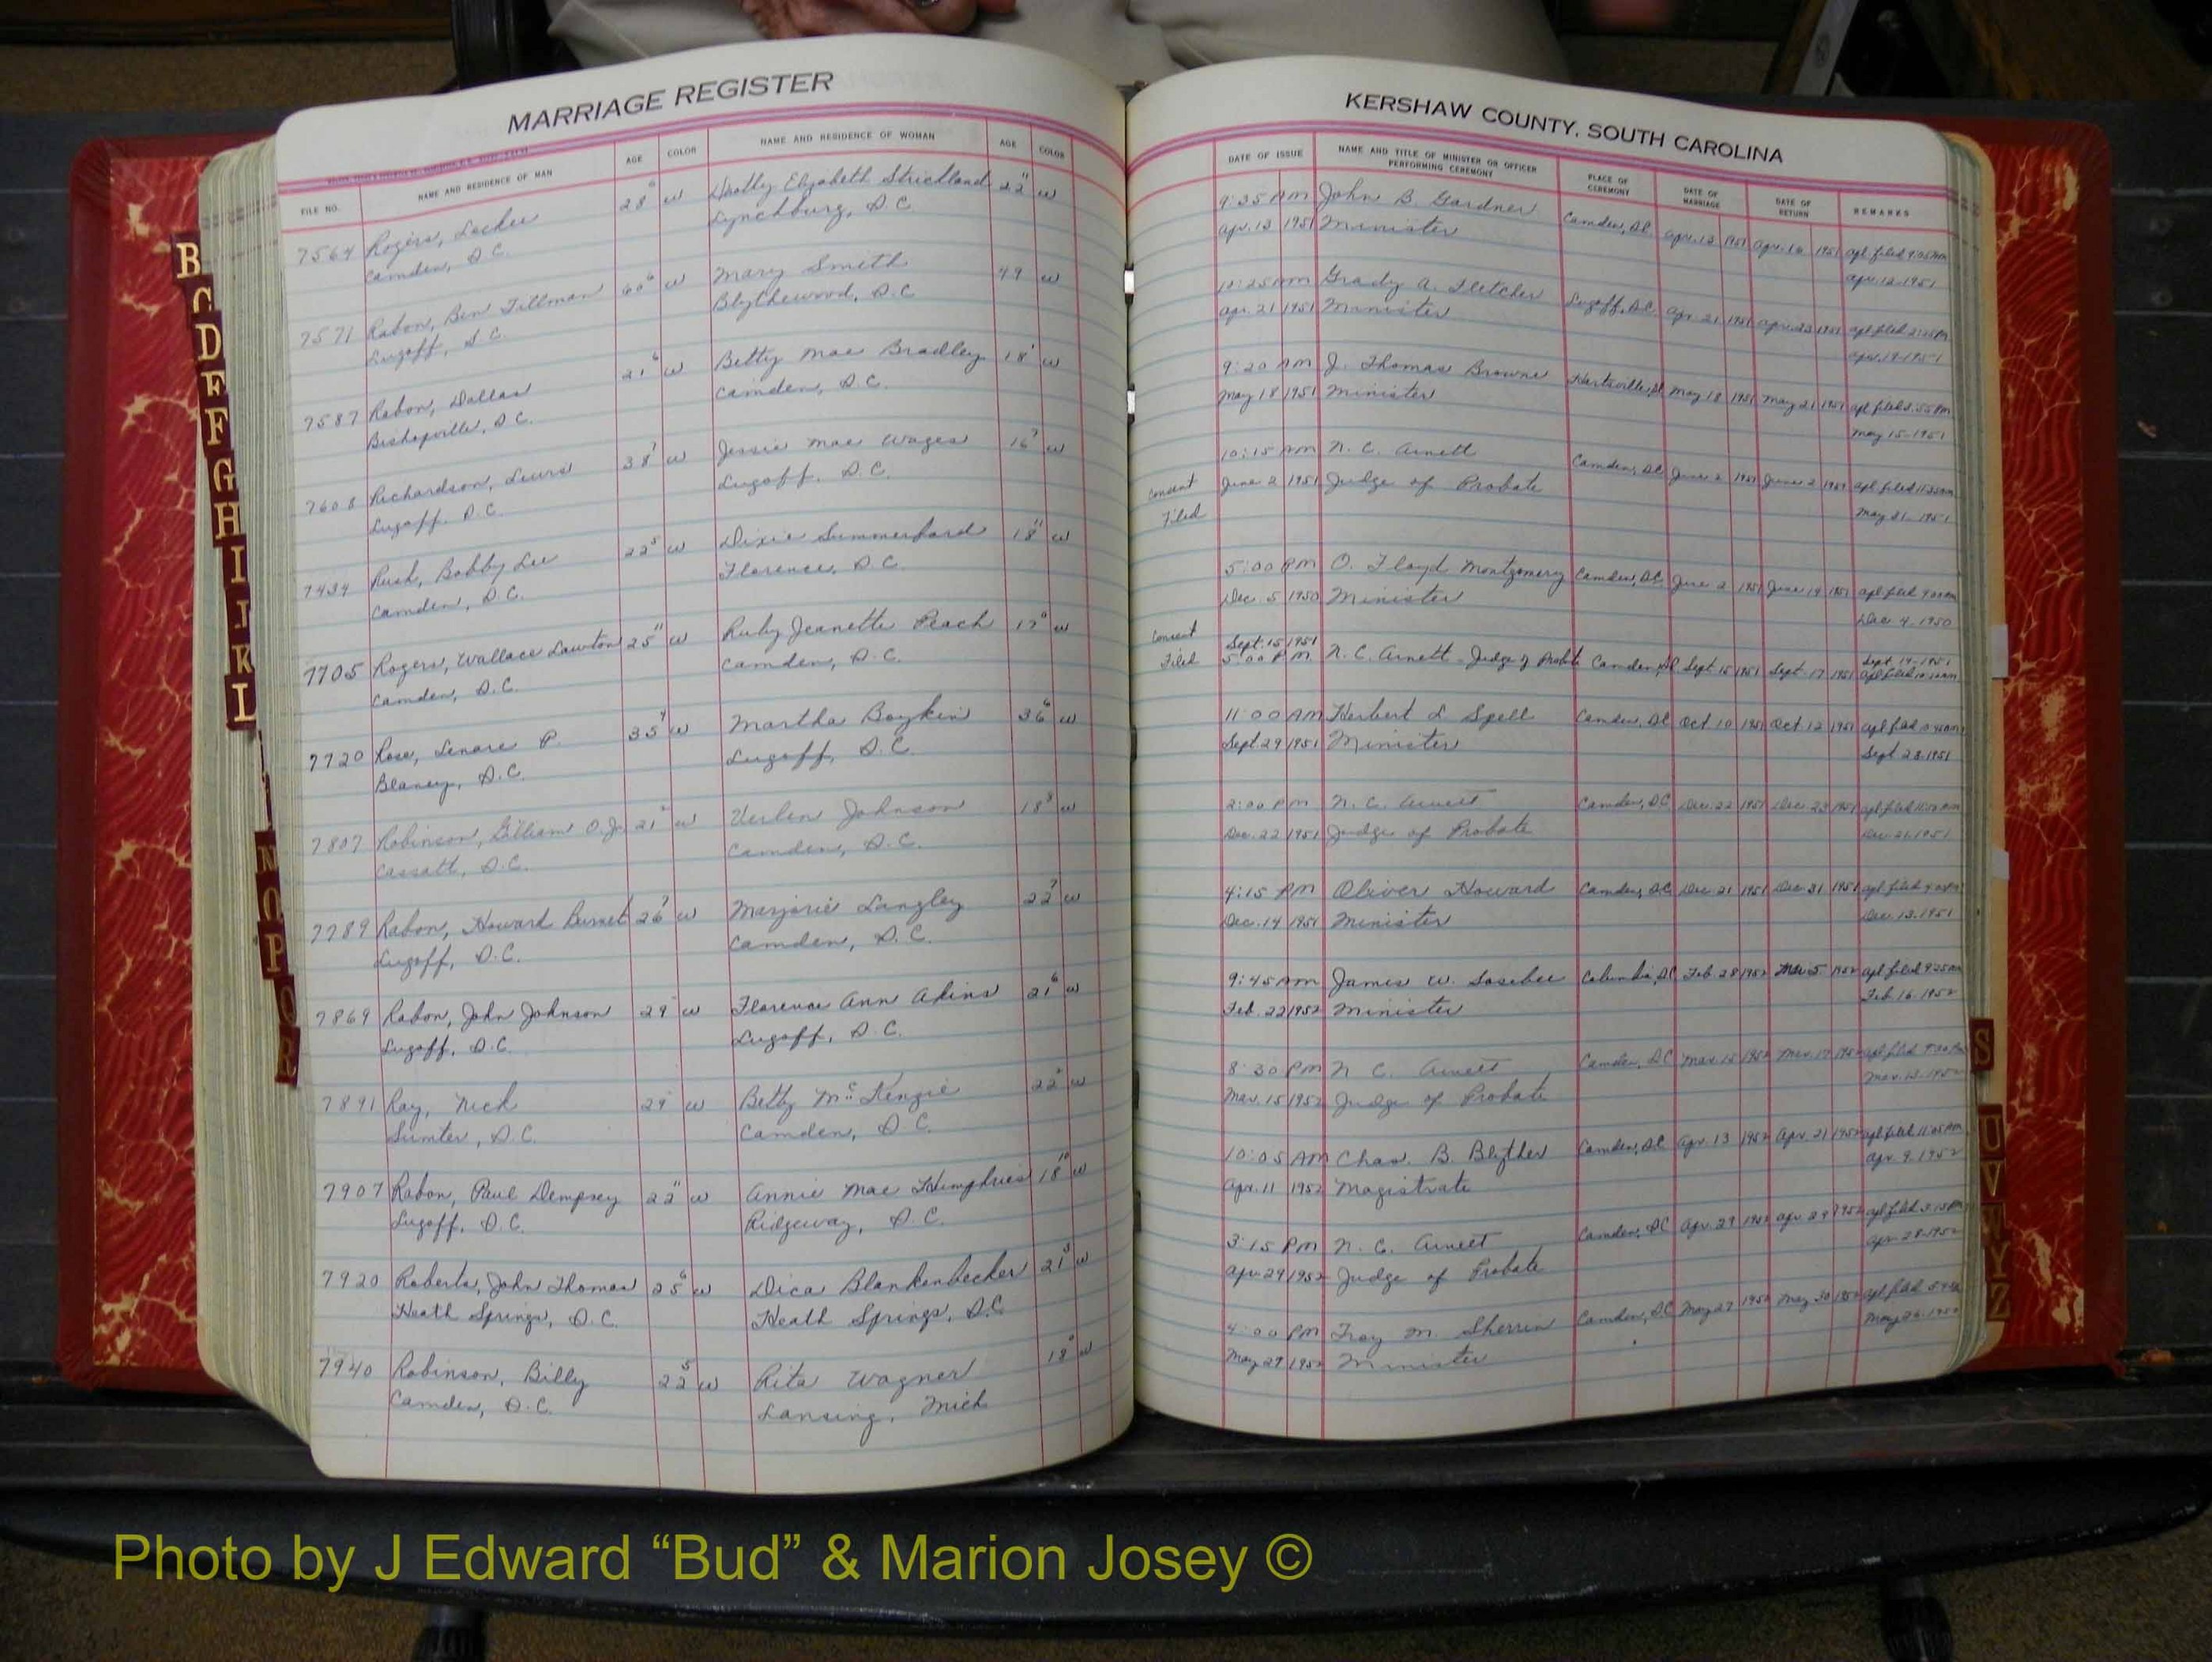 MARRIAGE REGISTER
FILE NO. NAME AND RESIDENCE OF MAN AGE COLOR NAME AND RESIDENCE OF WOMAN AGE COLOR
7564 Rogers, 28 6 W Elizabeth Strickland 22 11 W
Camden, S.C. Lynchburg, S.C.
7571 Rabon, Ben Tillman 60 6 W Mary Smith 49 W
Lugoff, S.C. Blythewood, S.C.
7587 Rabon, Dallas 21 6 W Betty Mae Bradley 18 1 W
Bishopville, S.C. Camden, S.C.
7608 Richardson, Lewis 38 1 W Jessie Mae Wages 16 7 W
Lugoff, S.C. Lugoff, S.C.
7434 Rush, Bobby Lee 22 5 W Dixie Summerford 18 11 W
Camden, S.C. Florence, S.C.
7705 Rogers, Wallace Lawton 25 11 W Ruby Jeanette Peach 17 W
Camden, S.C. Camden, S.C.
7720 Rose, P. 35 4 W Martha Boykin 36 6 W
Blaney, S.C. Lugoff, S.C.
7807 Robinson, William O. Jr. 21 W Verlen Johnson 18 W
Cassatt, S.C. Camden, S.C.
7789 Rabon, Howard 26 7 W Marjorie Langley 22 7 W
Lugoff, S.C. Camden, S.C.
7869 Rabon, John Johnson 29 W Florence Ann Akins 21 6 W
Lugoff, S.C. Lugoff, S.C.
7891 Ray, Nick 29 W Betty McKenzie 22 W
Sumter, S.C. Camden, S.C.
7907 Rabon, Paul Dempsey 22 11 W Annie Mae Humphries 18 10 W
Lugoff, S.C. Ridgeway, S.C.
7920 Roberts, John Thomas 25 6 W Dica Blankenbecker 21 W
Heath Springs, S.C. Heath Springs, S.C.
7940 Robinson, Billy 22 5 W Rita Wagner 18 W
Camden, S.C. Lansing, Mich
KERSHAW COUNTY, SOUTH CAROLINA
DATE OF ISSUE NAME AND TITLE OF MINISTER OR OFFICER PERFORMING CEREMONY PLACE OF CEREMONY DATE OF MARRIAGE DATE OF RETURN REMARKS
9:35 AM John B. Gardner Camden, S.C. Apr. 13 1951 Apr. 16 1951 apl. filed 9:05 AM
Apr. 13 1951 Minister Apr. 12-1951
Grady A. Fletcher Lugoff, S.C. Apr. 21 1951 Apr. 23 1951 apl. filed
Apr. 21 1951 Minister Apr. 19-1951
9:20 AM J. Thomas Browne Hartsville, S.C. May 18 1951 May 21 1951 apl. filed
May 18 1951 Minister May 15-1951
10:15 AM N. C. Arnett Camden, S.C. June 2 1951 June 2 1951 apl. filed
Consent June 2 1951 Judge of Probate May 31-1951
Filed
5:00 PM O. Floyd Montgomery Camden, S.C. June 2 1951 June 14 1951 apl. filed
Dec. 5 1950 Minister Dec. 4, 1950
Consent Sept. 15 1951 Sept. 14-1951
Filed 5:00 PM N. C. Arnett - Judge of Probate Camden, S.C. Sept. 15 1951 Sept. 17 1951 apl. filed
11:00 AM Herbert L. Spell Camden, S.C. Oct 10 1951 Oct. 12 1951 apl. filed
Sept. 29 1951 Minister Sept 28-1951
2:00 PM N. C. Arnett Camden, S.C. Dec. 22 1951 apl. filed
Dec. 22 1951 Judge of Probate Dec. 21, 1951
4:15 PM Oliver Howard Camden, S.C. Dec. 21 1951 Dec. 31 1951 apl. filed
Dec. 14 1951 Minister Dec. 13, 1951
9:45 AM James W. Sosebee Columbia, S.C. Feb. 28 1952 Mar 5 1952 apl. filed 9:25 AM
Feb. 22 1952 Minister Feb. 16-1952
8:30 PM N. C. Arnett Camden, S.C. Mar. 15 1952 Mar. 17 1952 apl. filed
Mar. 15 1952 Judge of Probate Mar. 13-1952
10:05 AM Chas. B. Blyther Camden, S.C. Apr. 13 1952 Apr. 21 1952 apl. filed
Apr. 11 1952 Magistrate Apr. 9-1952
3:15 PM N. C. Arnett Camden, S.C. Apr. 29 1952 Apr. 29 1952 apl. filed 3:15 PM
Apr. 29 1952 Judge of Probate Apr. 28-1952
4:00 PM Troy M. Sherrin Camden, S.C. May 27 1952 May 30 1952 apl. filed
May 27 1952 Minister May 26-1952
B
C
D
E
F
G
H
I
J
K
L
N
O
P
Q
R
S
U
V
W
Y
Z
Photo by J Edward “Bud” & Marion Josey ©